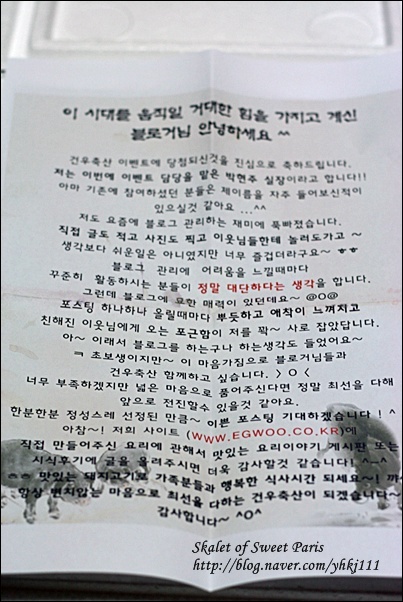 이 시대를 움직일 거대한 힘을 가지고 계신
블로거님 안녕하세요 ^^
건우축산 이벤트에 당첨되신것을 진심으로 축하드립니다.
저는 이번에 이벤트 담당을 맡은 박현주 실장이라고 합니다!!
아마 기존에 참여하셨던 분들은 제이름을 자주 들어보신적이
있으실것 같아요 ...^^
저도 요즘에 블로그 관리하는 재미에 푹빠졌습니다.
직접 글도 적고 사진도 찍고 이웃님들한테 놀러도가고 ~
생각보다 쉬운일은 아니였지만 너무 즐겁더라구요~ ㅎㅎ
블로그 관리에 어려움을 느낄때마다
꾸준히 활동하시는 분들이 정말 대단하다는 생각을 합니다.
그런데 블로그에 묘한 매력이 있던데요~ @O@
포스팅 하나하나 올릴때마다 뿌듯하고 애착이 느껴지고
친해진 이웃님에게 오는 포근함이 저를 꽉~ 사로 잡았답니다.
아~ 이래서 블로그를 하는구나 하는생각도 들었어요~
ㅋ 초보생이지만~ 이 마음가짐으로 블로거님들과
건우축산 함께하고 싶습니다. > O <
너무 부족하겠지만 넓은 마음으로 품어주신다면 정말 최선을 다해
앞으로 전진할수 있을것 같아요.
한분한분 정성스레 선정된 만큼~ 이쁜 포스팅 기대하겠습니다 ! ^
아참~! 저희 사이트 (WWW.EGWOO.CO.KR)에
직접 만들어주신 요리에 관해서 맛있는 요리이야기 게시판 또는
시식후기에 글을 올려주시면 더욱 감사할것 같습니다! ^-^
ㅎㅎ 맛있는 돼지고기로 가족분들과 행복한 식사시간 되세요~!
항상 변치않는 마음으로 최선을 다하는 건우축산이 되겠습니다~
감사합니다~ ^O^
Skalet of Sweet Paris
http://blog.naver.com/yhkj111